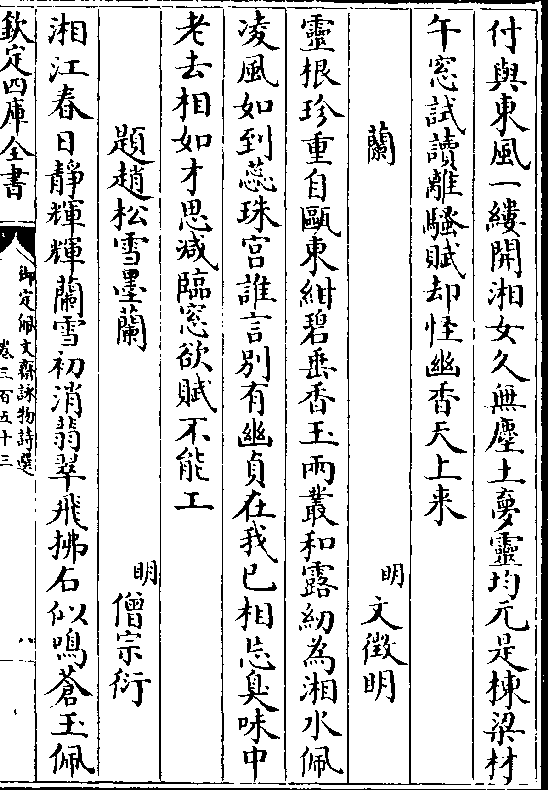 付與東風一縷開湘女久無塵土夢靈均元是棟梁材
午窓試讀離騷賦却怪幽香天上来
蘭
明
文徴明
靈根珍重自甌東紺碧垂香玉兩叢和露紉為湘水佩
凌風如到蕊珠宫誰言别有幽貞在我已相忘臭味中
老去相如才思减臨窓欲賦不能工
題趙松雪墨蘭
明
僧宗衍
湘江春日靜輝輝蘭雪初消翡翠飛拂石似鳴蒼玉佩
欽定四庫全書
御定佩文齋詠物詩選
卷三百五十三
八